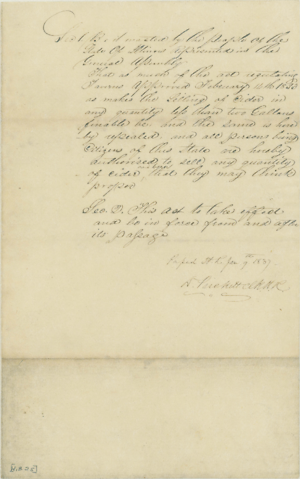 Sec 1. Be it enacted by the people of the
State Of Illinois represented in the
General Assembly
That so much of the act regulating
Taverns Approved February
as makes the selling of Cider in
any quantity less than two Gallons
finable be and the same is here
by repealed and all persons being
Citizens of this State are hereby
authorised to sell any quantity
of cider that they may think
proper
Sec 2. This act to take effect
and be in force from and after
its passage